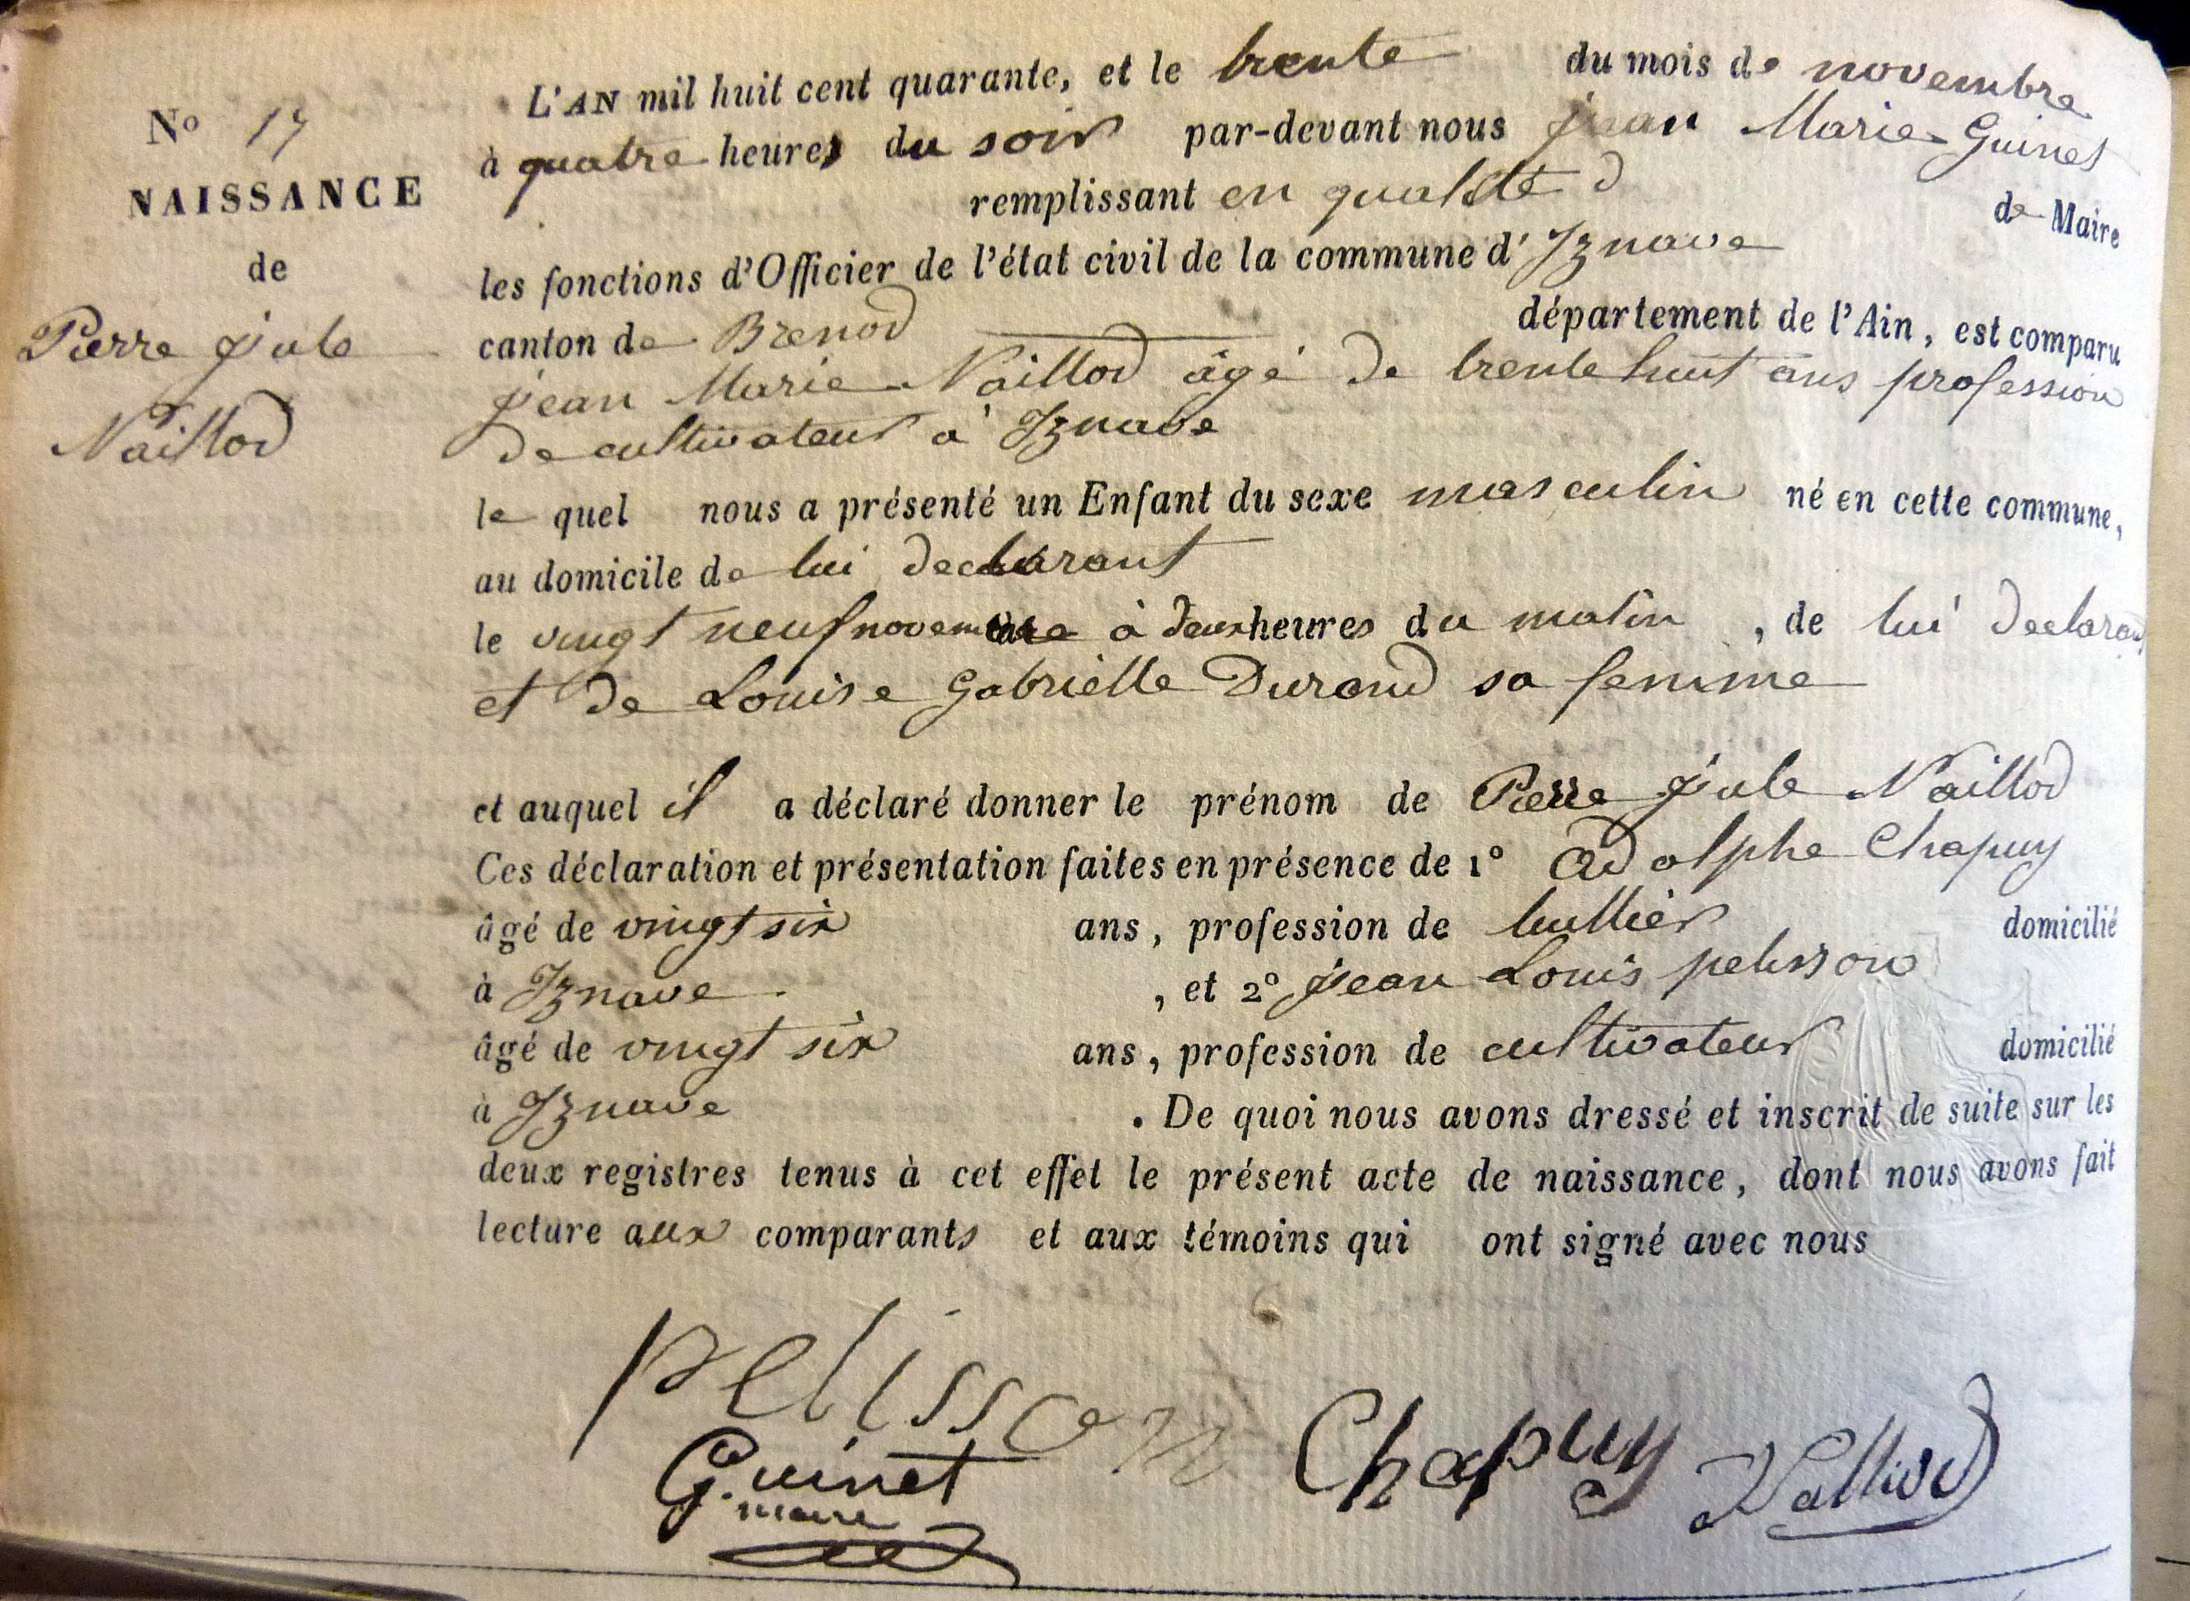 L'AN mil huit cent quarante, et le trente du mois de novembre
à quatre heures du soir par-devant nous jean Marie Guinet
remplissant en qualité d de Maire
les fonctions d'Officier de l'état civil de la commune d' Iznave
canton de Brenod département de l'Ain, est comparu
jean Marie Naillod âgé de trente huit ans profession
de cultivateur à Iznave
le quel nous a présenté un Enfant du sexe masculin né en cette commune,
au domicile de lui declarant
le vingt neuf novembre à deux heures du matin, de lui declarant
et de Louise Gabrielle Durand sa femme
et auquel il a déclaré donner le prénom de Pierre jule Naillod
Ces déclaration et présentation faites en présence de 1° Adolphe Chapuy
âgé de vingt six ans, profession de domicilié
à Iznave, et 2° jean Louis pelisson
âgé de vingt six ans, profession de cultivateur domicilié
à Iznave. De quoi nous avons dressé et inscrit de suite sur les
deux registres tenus à cet effet le présent acte de naissance, dont nous avons fait
lecture aux comparants et aux témoins qui ont signé avec nous
pelisson
Guinet
maire
Chapuy
Nalliod
N° 17
NAISSANCE
de
Pierre jule
Naillod